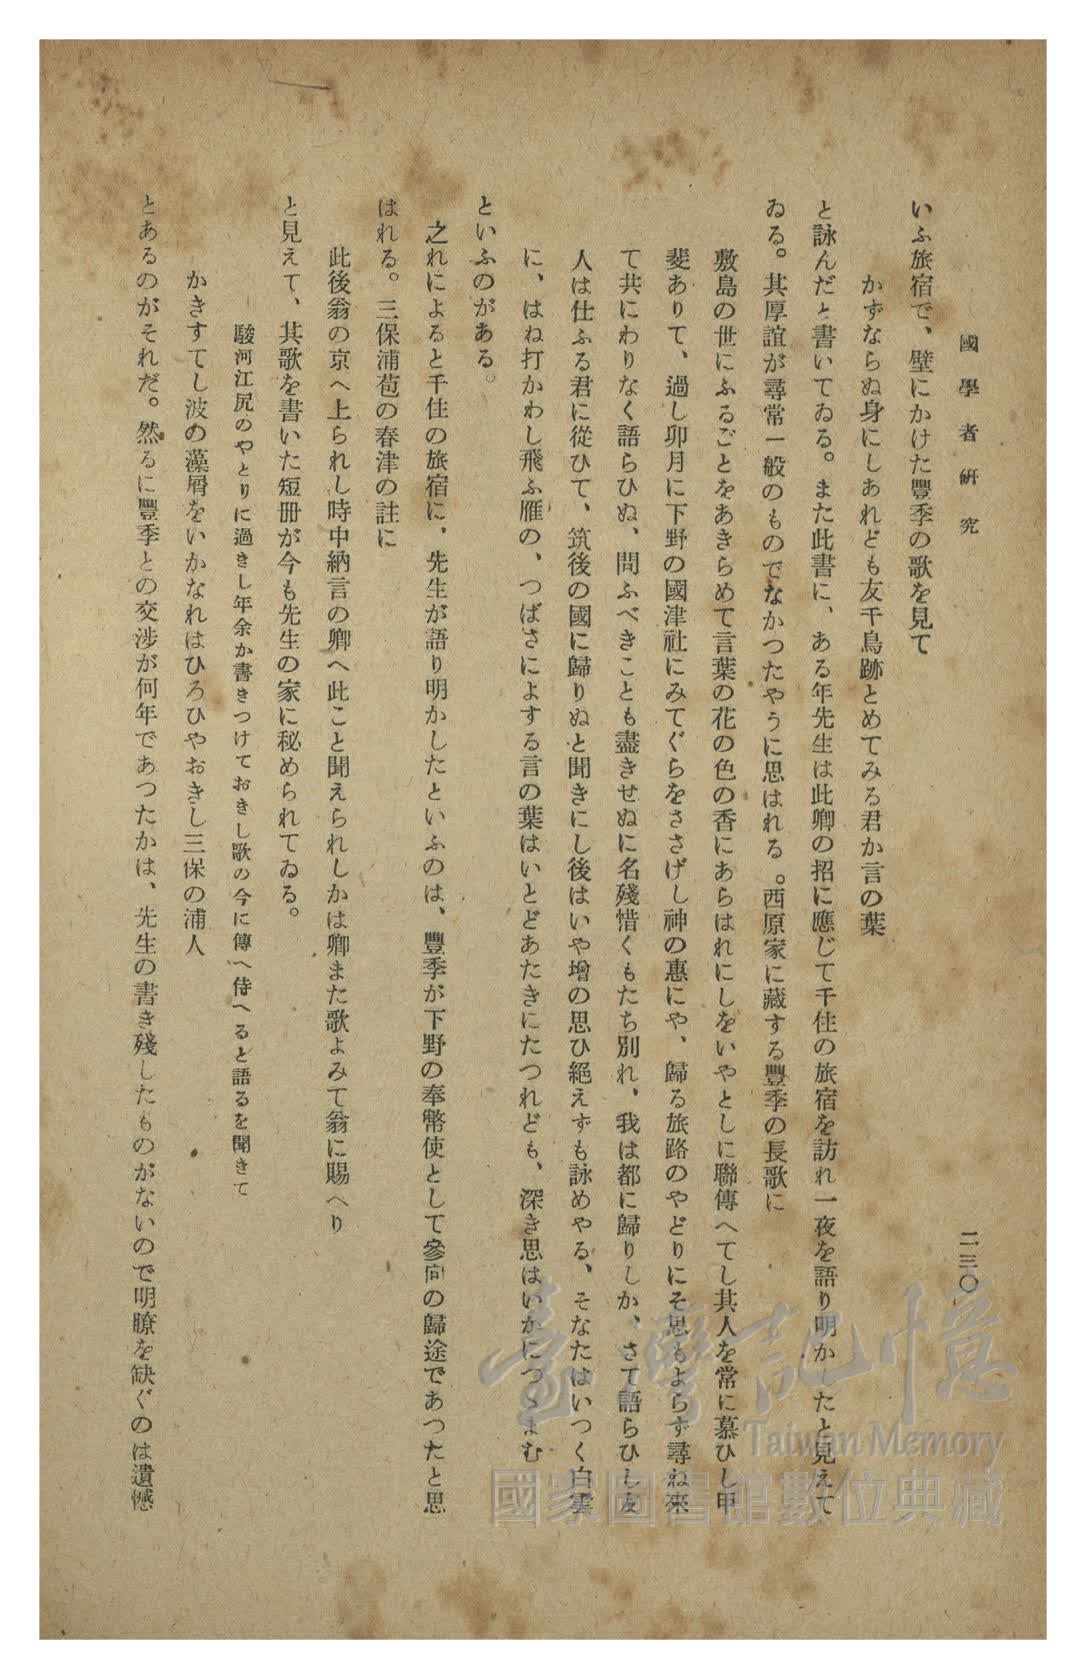 國學者硏究
二三〇
いふ旅宿で、壁にかけた豐季の歌を見て
かずならぬ身にしあれども友千鳥跡とめてみる君か言の葉
と詠んだと書いてゐる。また此書に、ある年先生は此卿の招に應じて千住の旅宿を訪れ一夜を語り明かしたと見えて
ゐる。其厚誼が尋常一般のものでなかつたやうに思はれる。西原家に藏する豐季の長歌に
敷島の世にふるごとをあきらめて言葉の花の色の香にあらはれにしをいやとしに聯傳へてし其人を常に慕ひし甲
斐ありて、過し卯月に下野の國津社にみてぐらをささげし神の惠にや、歸る旅路のやどりにそ思もよらず尋ね來
て共にわりなく語らひぬ、問ふべきことも盡きせぬに名殘惜くもたち別れ、我は都に歸りしか、さて語らひし友
人は仕ふる君に從ひて、筑後の國に歸りぬと聞きにし後はいや增の思ひ絕えずも詠めやる、そなたはいつく白雲
に、はね打かわし飛ふ雁の、つばさによする言の葉はいとどあたきにたつれども、深き思はいかにつゝまむ
といふのがある。
之れによると千住の旅宿に、先生が語り明かしたといふのは、豐季が下野の奉幣使として參向の歸途であつたと思
はれる。三保浦苞の春津の註に
此後翁の京へ上られし時中納言の卿へ此こと聞えられしかは卿また歌よみて翁に賜へり
と見えて、其歌を書いた短冊が今も先生の家に秘められてゐる。
駿河江尻のやとりに過きし年余か書きつけておきし歌の今に傳へ侍へると語るを聞きて
かきすてし波の藻屑をいかなれはひろひやおきし三保の浦人
とあるのがそれだ。然るに豐季との交涉が何年であつたかは、先生の書き殘したものがないので明瞭を缺ぐのは遺憾
臺灣記憶
Taiwan Memory
國家圖書館數位典藏